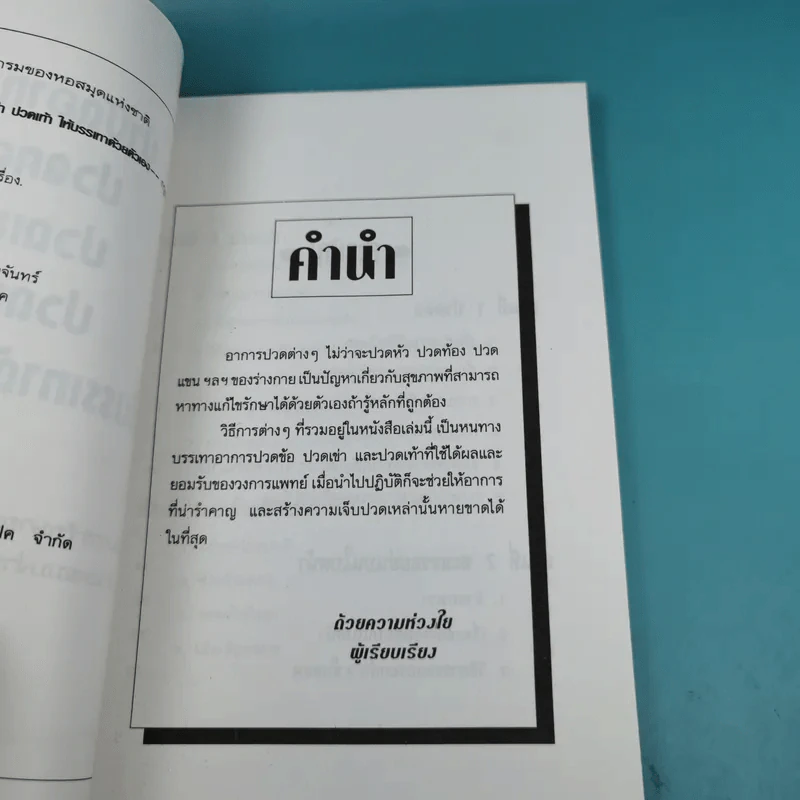 รมของหอสมุดแห่งชาติ
ปวดเท้า ให้บรรเทาด้วยตัวเอง--
รื่อง.
จันทร์
ค
จำกัด
คำนำ
อาการปวดต่างๆ ไม่ว่าจะปวดหัว ปวดท้อง ปวด
แขน ฯลฯ ของร่างกาย เป็นปัญหาเกี่ยวกับสุขภาพที่สามารถ
หาทางแก้ไขรักษาได้ด้วยตัวเองถ้ารู้หลักที่ถูกต้อง
วิธีการต่างๆ ที่รวมอยู่ในหนังสือเล่มนี้ เป็นหนทาง
บรรเทาอาการปวดข้อ ปวดเข่า และปวดเท้าที่ใช้ได้ผลและ
ยอมรับของวงการแพทย์ เมื่อนำไปปฏิบัติก็จะช่วยให้อาการ
ที่น่ารำคาญ และสร้างความเจ็บปวดเหล่านั้นหายขาดได้
ในที่สุด
ด้วยความห่วงใย
ผู้เรียบเรียง